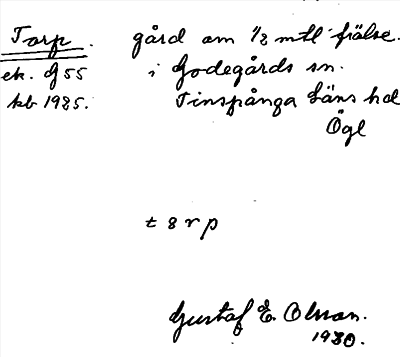 Torp. gård om 1/2 mtl frälse.
ek. J 55 i Godegårds sn.
kb 1925. Finspånga läns hd
Ögl
t 8 r p
Gustaf E. Olsson.
1930.